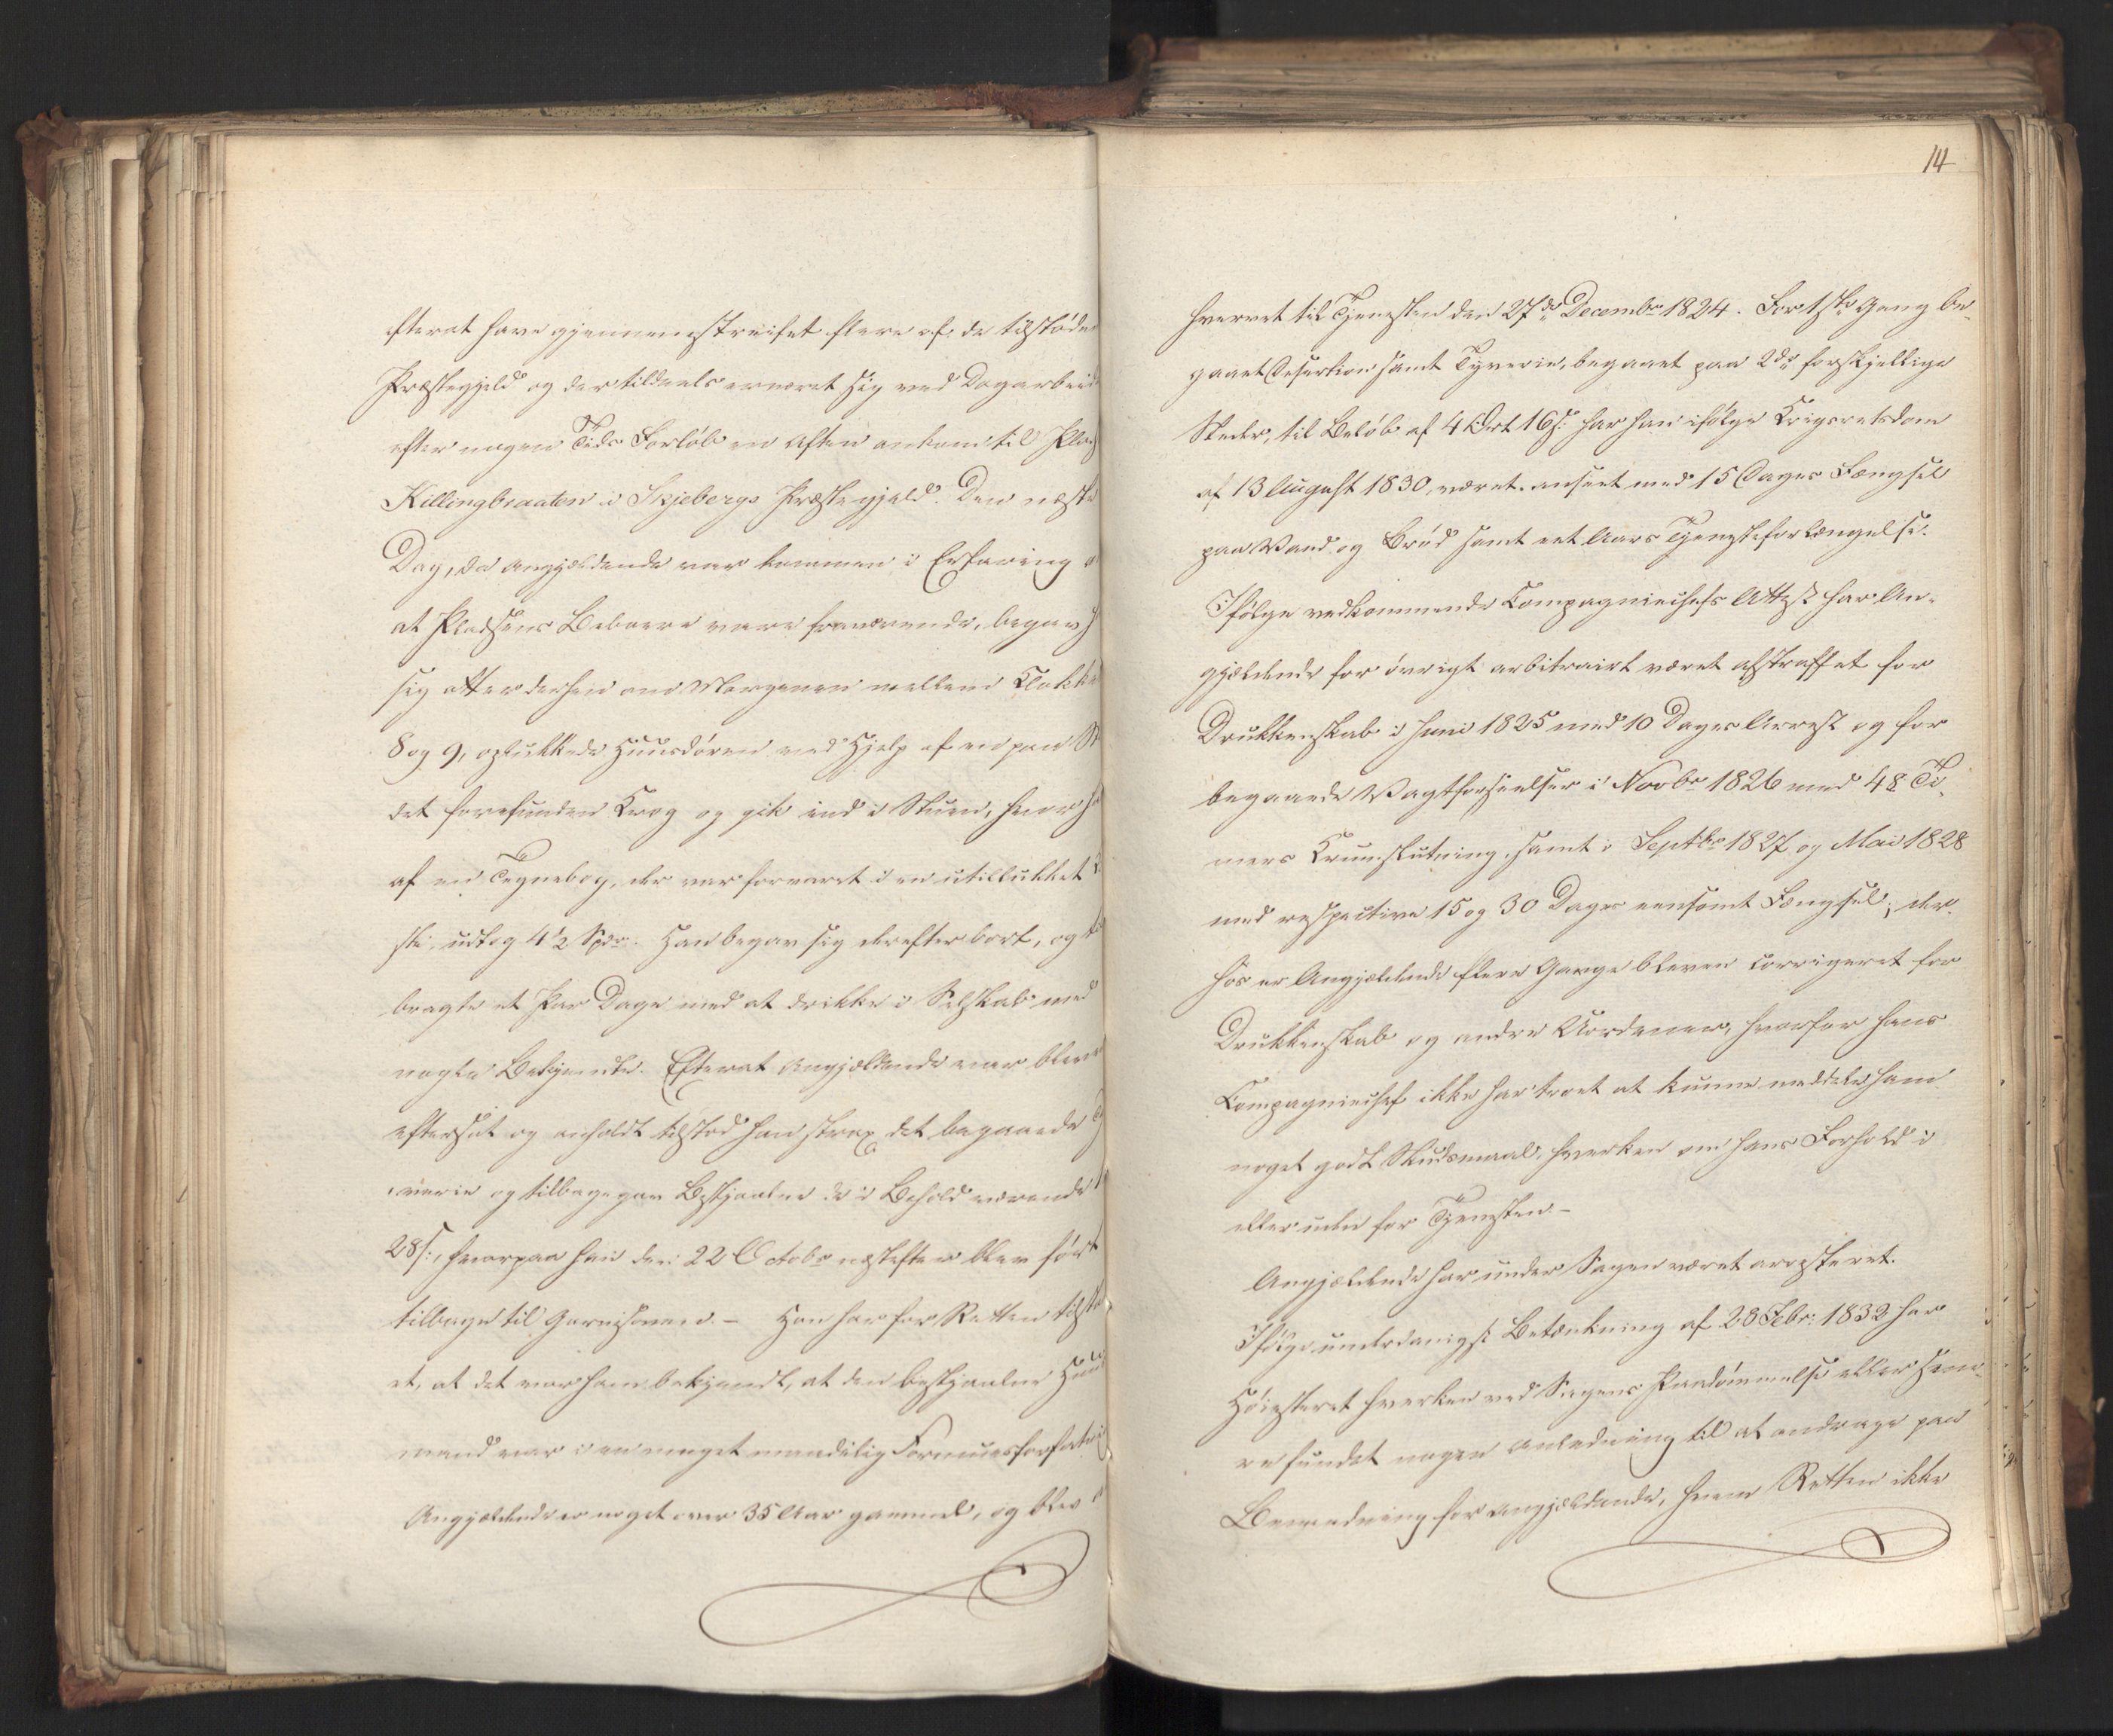 efterat have gjennemstreifet flere af de tilstøde
Præstegjeld og der tildeels ernæret sig ved Dagarbeide
efter nogen Tids Forløb en Aften ankom til Plads
Killingbraaten i Skjebergs Præstegjeld. Den næste
Dag, da Angjældende var kommen i Erfaring o
at Pladsens Beboere vare fraværende, begav h
sig atter derhen om Morgenen mellem Klokke
8 og 9, oplukkede Huusdøren ved Hjelp af en paa St
det forefunden Krog og gik ind i Stuen, hvor ha
af en Tegnebog, der var forvaret i en utillukket K
ste, udtog 4½ Spdr. Han begav sig derefter bort, og ti
bragte et Par Dage med at drikke i Selskab med
nogle Bekjendte. Efterat Angjældende var bleve
eftersat og anholdt tilstod han strax det begaaede Ty
verie og tilbagegav Bestjaalne de i Behold værende
28 s:, hvorpaa han den 22 Octobr næstefter blev ført
tilbage til Garnisonen. – Han har for Retten tilsta
et, at det var ham bekjendt, at den bestjaalne Huus
mand var i en meget maadelig Formuesforfatni
Angjældende er noget over 35 Aar gammel, og blev
14
hvervet til Tjenesten den 27de Decembr 1824. For 1ste Gang be-
gaaet Desertion samt Tyverie, begaaet paa 2de forskjellige
Steder, til Beløb af 4 Ort 16 s: har han ifølge Krigsretsdom
af 13 August 1830, været anseet med 15 Dages Fængsel
paa Vand og Brød samt eet Aars Tjenesteforlængelse.
Ifølge vedkommende Compagniechefs Attest har An-
gjældende for øvrigt arbitrairt været afstraffet for
Drukkenskab i Juni 1825 med 10 Dages Arrest og for
begaaede Vagtforseelser i Novbr 1826 med 48 Ti-
mers Krumslutning, samt i Septbr 1827 og Mai 1828
med respective 15 og 30 Dages eensomt Fængsel; der-
hos er Angjældende flere Gange bleven corrigeret for
Drukkenskab og andre Uordener, hvorfor hans
Compagniechef ikke har troet at kunne meddele ham
noget godt Skudsmaal, hverken om hans Forhold i
eller uden for Tjenesten. –
Angjældende har under Sagen været arresteret.
Ifølge underdanigst Betænkning af 28 Febr: 1832 har
Høiesteret hverken ved Sagens Paadømmelse eller sene-
re fundet nogen Anledning til at andrage paa
Benaadning for Angjældende, hvem Retten ikke